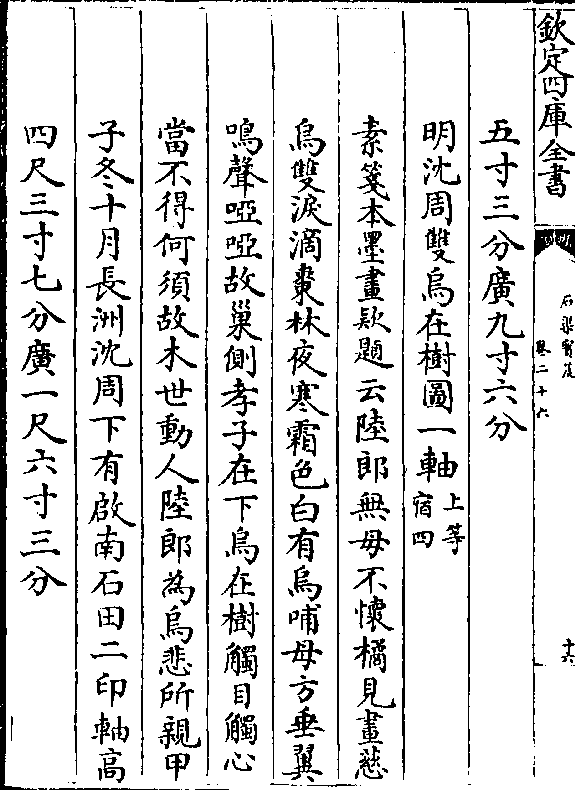 欽定四庫全書
石渠寶笈
卷二十六
十六
五寸三分廣九寸六分
明沈周雙烏在樹圖一軸上等宿四
素箋本墨畫款題云陸郎無母不懷橘見畫慈
烏雙淚滴棗林夜寒霜色白有烏哺母方垂翼
鳴聲啞啞故巢側孝子在下烏在樹觸目觸心
當不得何須故木世動人陸郎為烏悲所親甲
子冬十月長洲沈周下有啟南石田二印軸高
四尺三寸七分廣一尺六寸三分